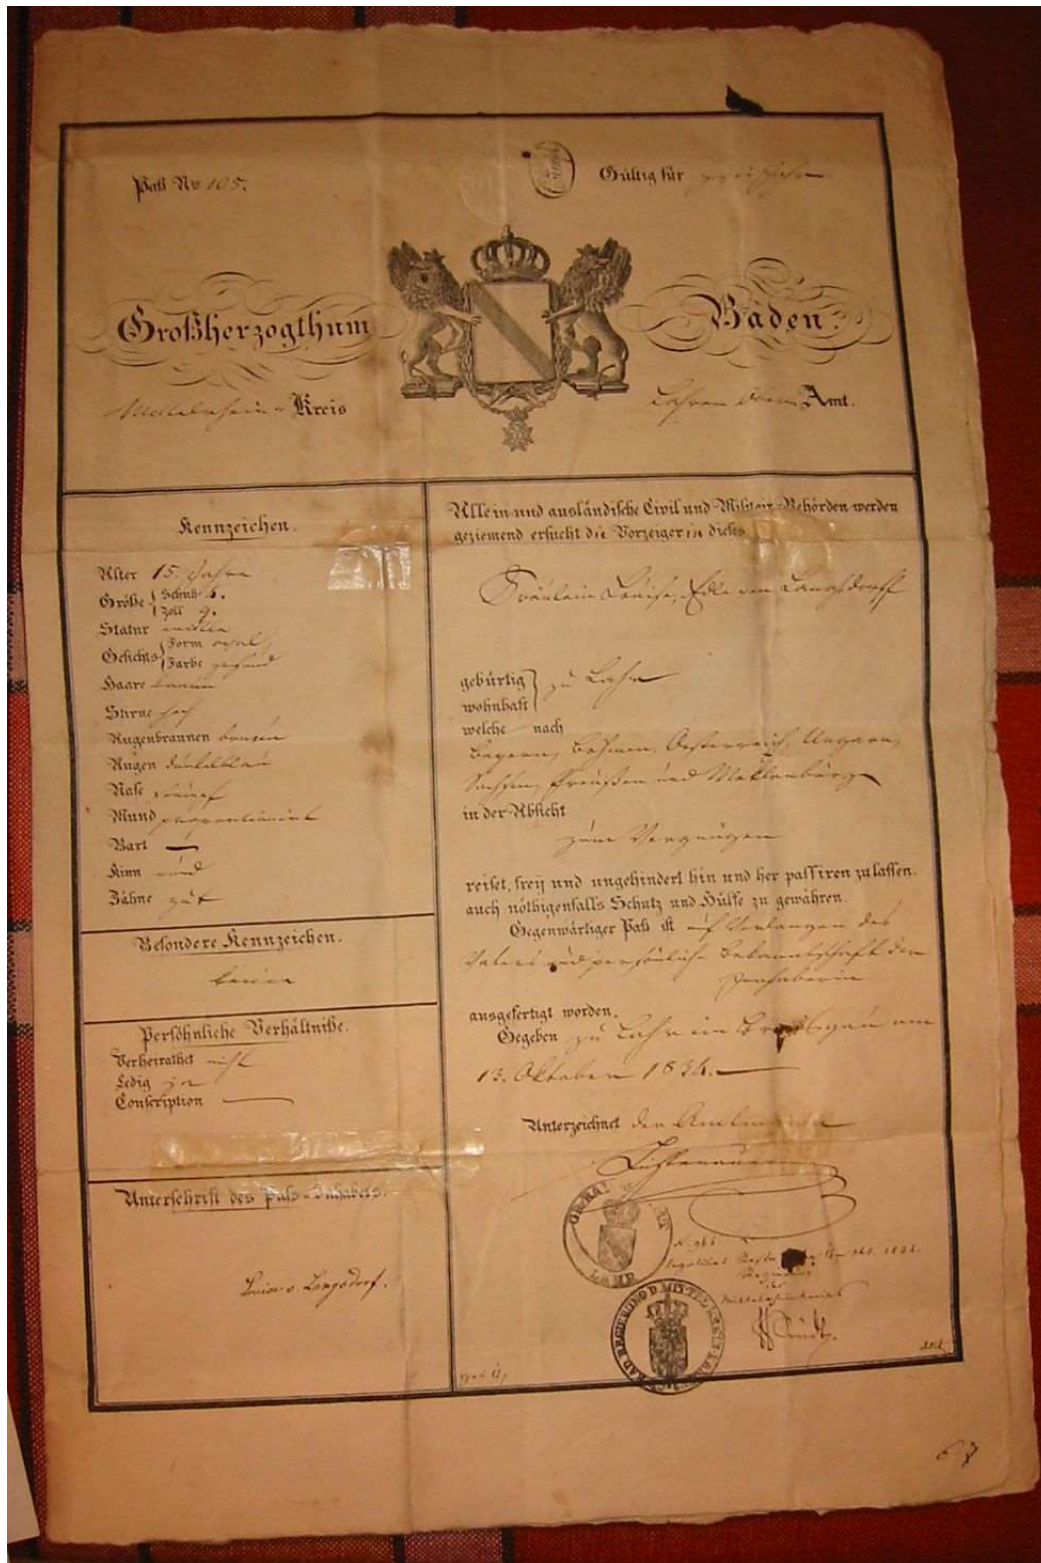 Paß Nro 105.
Gültig für
Großherzogthum Baden.
Mittelrhein-Kreis
Lahrer Ober Amt.
Kennzeichen.
Alter 15. Jahre
Größe Schuh
Zoll 9.
Statur
Gesichts Form oval
Farbe gesund
Haare braun
Stirne hoch
Augenbraunen braun
Augen dunkelblau
Nase stumpf
Mund proportionirt
Bart —
Kinn rund
Zähne gut
Besondere Kennzeichen.
keine
Persöhnliche Verhältniße.
Verheirathet nicht
Ledig ja
Conscription —
Unterschrift des Paß-Inhabers.
Louise v. Langsdorf.
Alle in und ausländische Civil und Militair-Behörden werden
geziemend ersucht die Vorzeigerin dieses
Fräulein Louise, Edle von Langsdorff
gebürtig
wohnhaft
zu Lahr
welche nach
Bayern, Böhmen, Oesterreich, Ungarn,
Sachsen, Preußen und Meklenburg
in der Absicht
zum Vergnügen
reiset, frey und ungehindert hin und her passiren zu lassen,
auch nöthigenfalls Schutz und Hülfe zu gewähren.
Gegenwärtiger Paß ist auf Verlangen des
Vaters und persönliche Bekanntschaft der
Inhaberin
ausgefertigt worden.
Gegeben zu Lahr im Breisgau am
13. Oktober 1834.
Unterzeichnet der
LAHR